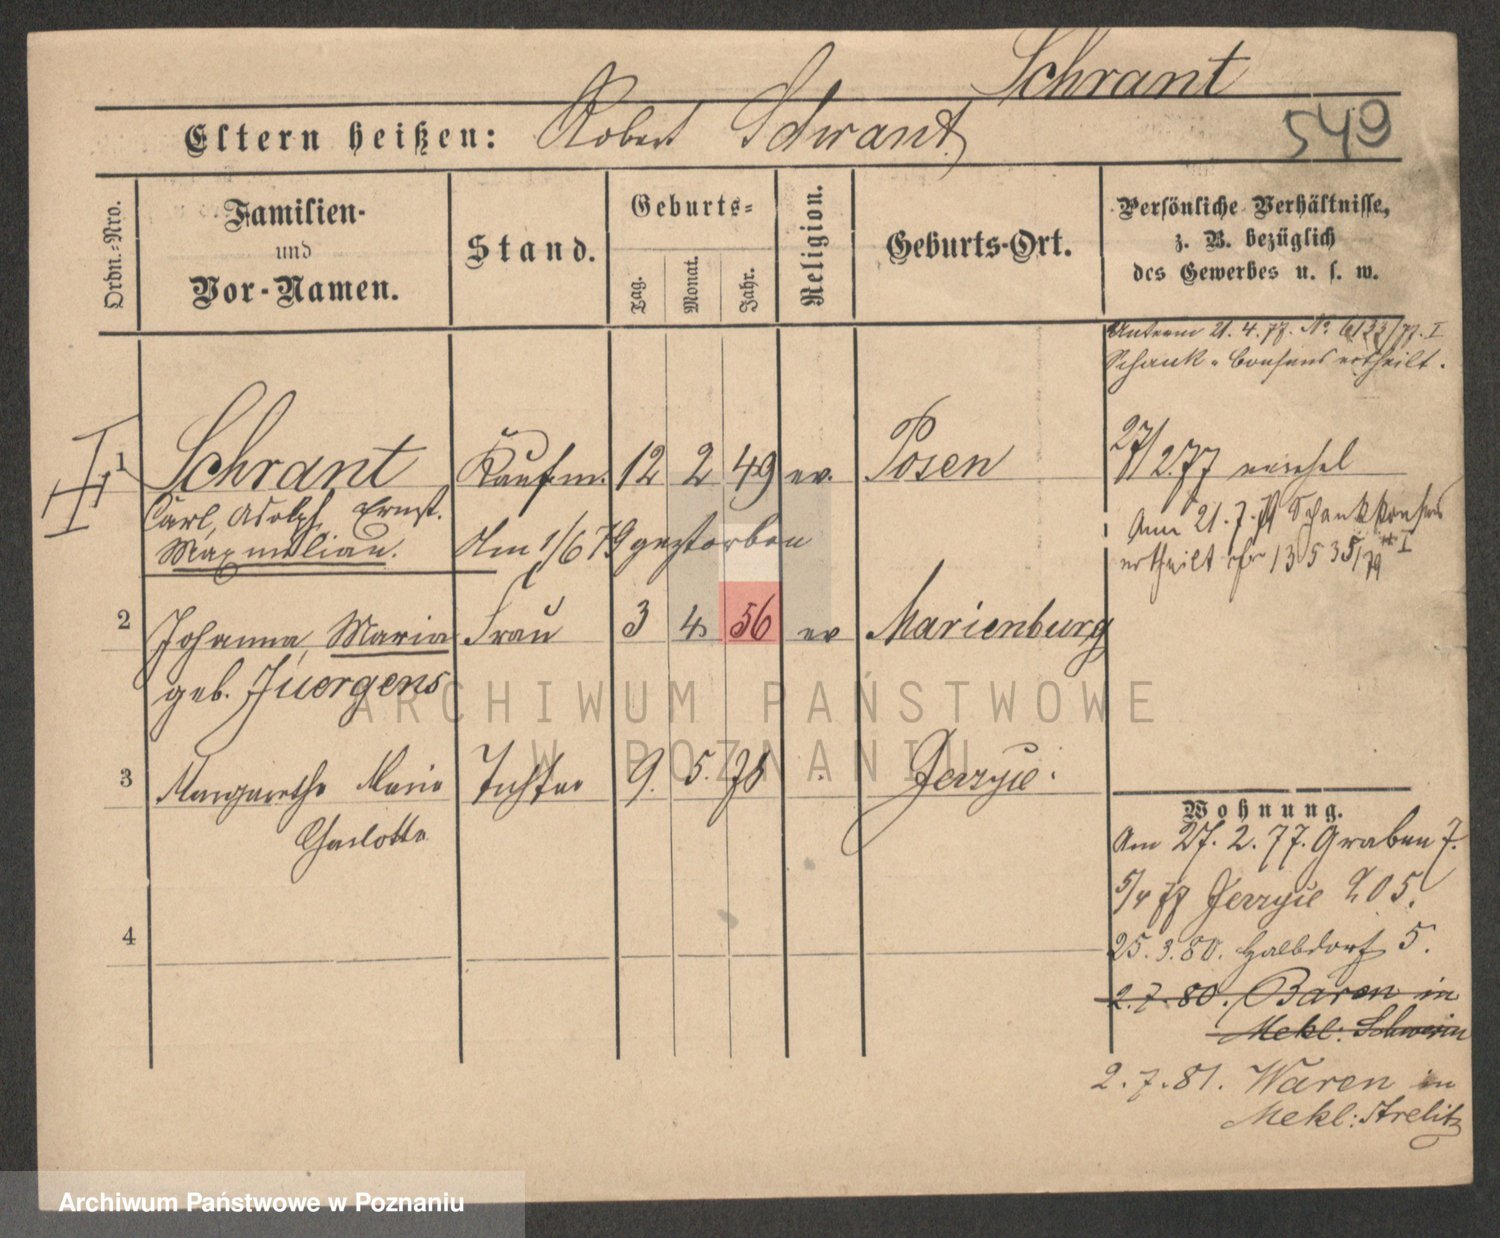 Schrant
Eltern heißen: Robert Schrant
549
Ordn.-Nro.
Familien-
und
Vor-Namen.
Stand.
Geburts-
Tag.
Monat.
Jahr.
Religion.
Geburts-Ort.
Persönliche Verhältnisse,
z. B. bezüglich
des Gewerbes u. s. w.
Unterm 21.4.77. No 6133/77. I
Schank-Consens ertheilt.
1 Schrant Kaufm. 12 2 49 ev. Posen
27/2.77
Carl, Adolph, Ernst.
Maximilian.
Am 1/6 79 gestorben
Am 21.7.79 Schankkonsens
ertheilt 13535/79 I
2 Johanna, Maria Frau 3 4 56 ev Marienburg
geb. Juergens
3 Margarethe Marie Tochter 9. 5. 78 Jerzyce.
Charlotte
4
Wohnung.
Am 27.2.77. Graben 7.
5/4 78 Jerzyce 205.
25.3.80. Halbdorf 5.
2.7.80. Baren in
Mekl: Schwerin
2.7.81. Waren in
Mekl: Strelitz
ARCHIWUM PAŃSTWOWE
W POZNANIU
Archiwum Państwowe w Poznaniu